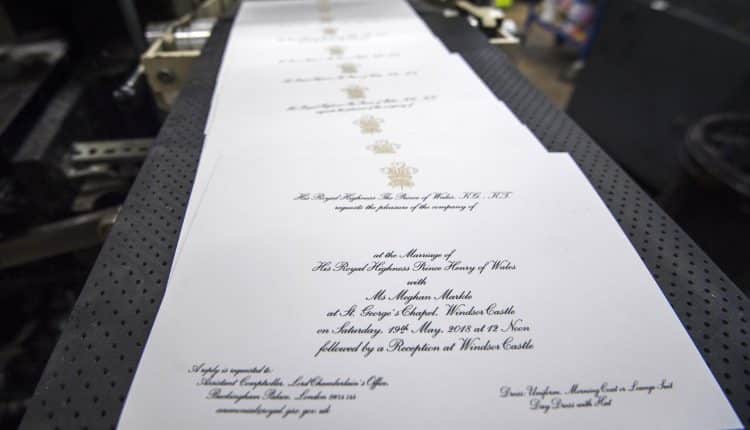 His Royal Highness The Prince of Wales, K.G., K.T.
requests the pleasure of the company of
at the Marriage of
His Royal Highness Prince Henry of Wales
with
Ms Meghan Markle
at St. George's Chapel, Windsor Castle
on Saturday, 19th May, 2018 at 12 Noon
followed by a Reception at Windsor Castle
A reply is requested to:
Assistant Comptroller, Lord Chamberlain's Office,
Buckingham Palace, London SW1A 1AA
Dress: Uniform, Morning Coat or Lounge Suit
Day Dress with Hat